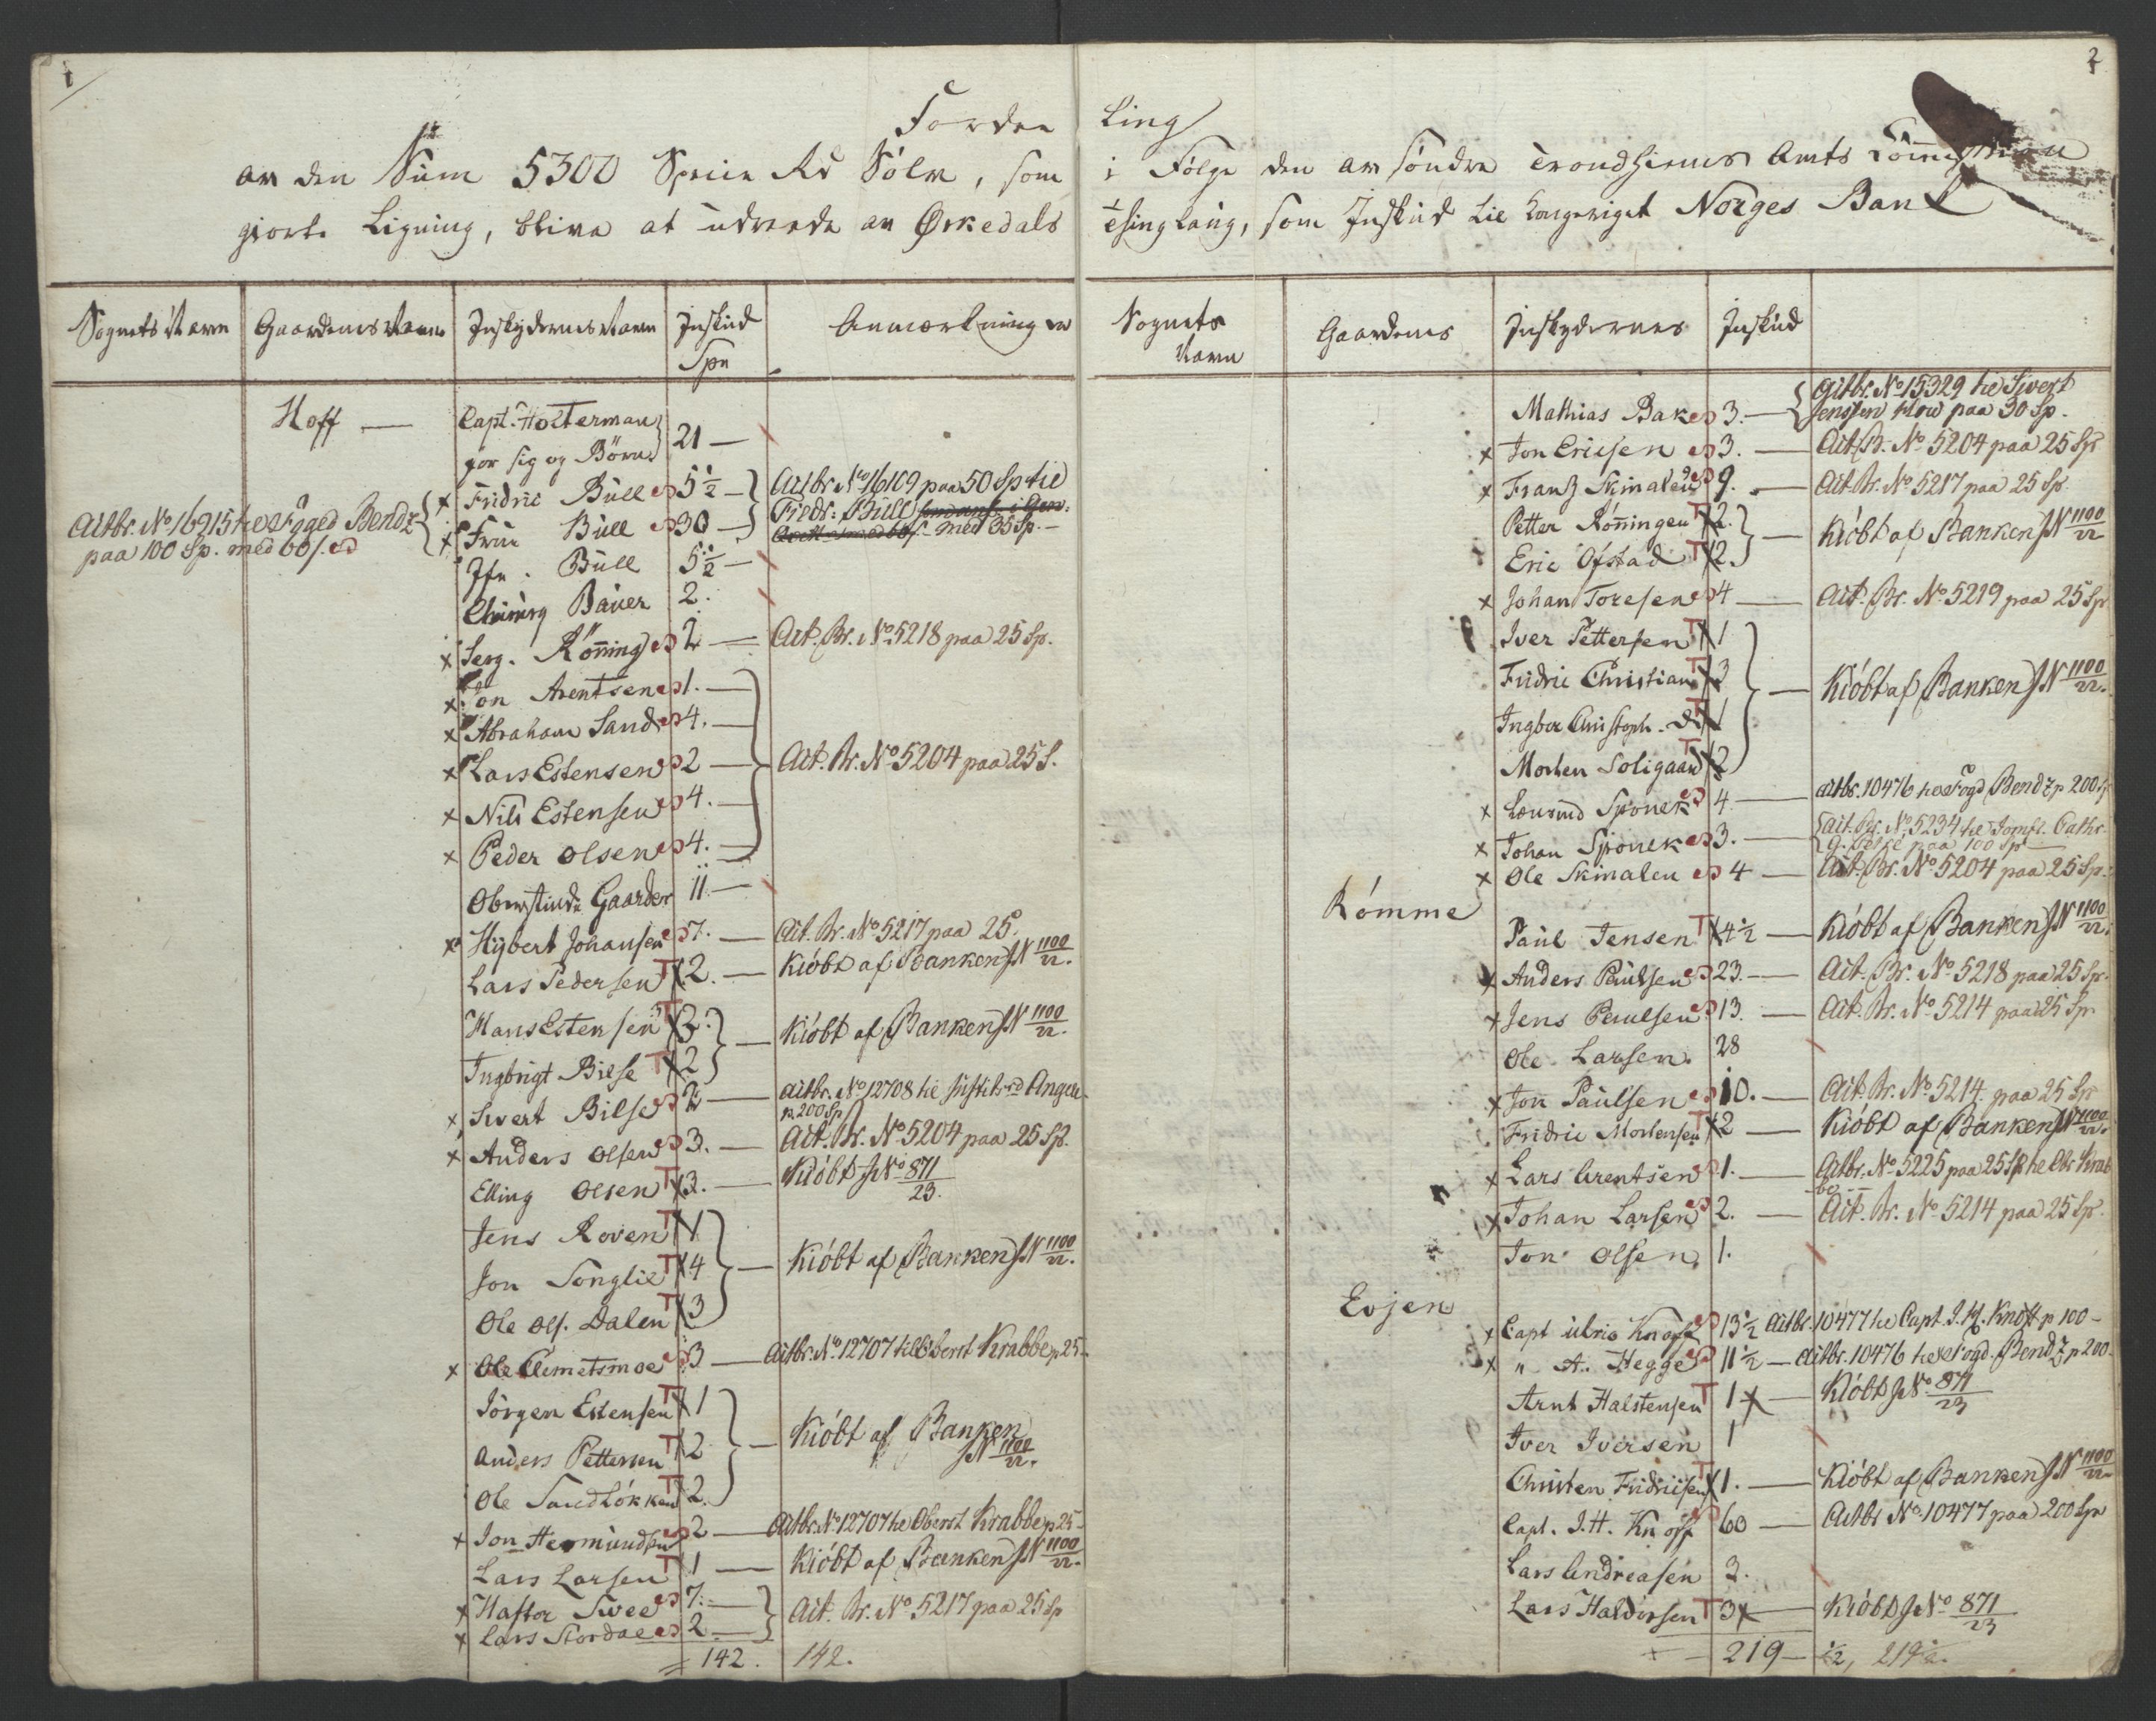 1
Fordeeling
av den Sum 5300 Specie Rd Sölv, som
giorte Ligning, bliver at udreede av Ørkedals
Sognets Navn Gaardenes Navne Indskydernes Navne Indskud Anmærkninger
Spe
Hoff — Capt. Holterman
for sig og Börn 21 —
Fridric Büll 5½ — Actbr. No 16109 paa 50 Sp til
Actbr. No 16915 til Foged Bendz
paa 100 Sp. med 60
x Frue Büll 30 — Fredr: Büll
med 35 Sp.
Jfr. Büll 5½ —
Chirurg Bauer 2.
x Serg. Rönning 2 — Act. Br. No 5218 paa 25 Sp.
x Jon Arentsen 1. —
x Abraham Sand 4. —
x Lars Estensen 2 — Act. Br. No 5204 paa 25 S.
x Nils Estensen 4. —
x Peder Olsen 4. —
Gaarder 11. —
x Hybert Johansen 7. — Act. Br. No 5217 paa 25
Lars Pedersen T 2. — Kiöbt af Banken JN 1100/22.
Hans Estensen T 3. Kiöbt af Banken JN 1100/22.
Ingbrigt Bilse T 2
x Sivert Bilse 2 — Actbr. No 12708 til Justits Angell
p. 200 Sp
x Anders Olsen 3. — Act. Br. No 5204 paa 25 Sp.
Elling Olsen T 3. — Kiöbt JNo 871/23.
Jens Roven T 1
Jon Songlie T 4 — Kiöbt af Banken JN 1100/22.
Ole Ols. Dalen T 3
x Ole Clemetsmoe 3 — Actbr. No 12707 til Oberst Krabbe p 25 —
Jörgen Estensen T 1
Anders Pettersen T 2 — Kiöbt af Banken
JN 1100/22.
Ole Sandlökken T 2.
x Jon Hermundsen 2 — Actbr. No 12707 til Oberst Krabbe p 25 —
Lars Larsen T 1 — Kiöbt af Banken JN 1100/22.
x Haftor Svee 7. —
x Lars Stordal 2 — Act. Br. No 5217 paa 25 Sp
142. 142.
2
i Fölge den av Söndre Trondhiems Amts
Thinglaug, som Indskud til Kongeriget Norges Bank
Sognets
Navn Gaardenes Indskydernes Indskud
Mathias Bak 3. — Actbr. No 15329 til Sivert
Jenssen paa 30 Sp.
x Jon Ericsen 3. — Act. Br. No 5204 paa 25 Sp
x Frantz Skinalen 9. — Act. Br. No 5217 paa 25 Sp.
Petter Rönningen T 2. — Kiöbt af Banken JN 1100/22
Eric Ofstad T 2.
x Johan Toresen 4 — Act. Br. No 5219 paa 25 Sp
Iver Pettersen T 1
Fridric Christian T 3 — Kiöbt af Banken JN 1100/22.
Ingbor Christoph. D. T 1
Morten Soligaard T 2
x Sponek 4 — Actbr. 10476 til Fogd Bendz p 200 Sp
x Johan Sponek 3. — Act. Br. No 5234 til Jomfr. Cathr.
paa 100 Sp
x Ole Skinalen 4 — Act. Br. No 5204 paa 25 Sp.
Römme
Paul Jensen T 4½ — Kiöbt af Banken JN 1100/22.
x Anders Paulsen 23. — Act. Br. No 5218 paa 25 Sp.
x Jens Paulsen 13. — Act. Br. No 5214 paa 25 Sp.
Ole Larsen 28
x Jon Paulsen 10. — Act. Br. No 5214. paa 25 Sp
Fridric Mortensen T 2 — Kiöbt af Banken JN 1100/22.
x Lars Arentsen 1. — Actbr. No 5225 paa 25 Sp. til Obr Krabbe
x Johan Larsen 2. — Act. Br. No 5214 paa 25 Sp.
Jon Olsen 1.
Evjen
x Capt Ulric Knoff 13½ Actbr. 10477 til Capt. J. H. Knoff p 100 —
x " A. Hegge 11½ — Actbr. 10476 til Fogd. Bendz p 200
Arnt Halstensen T 1 x — Kiöbt JNo 871/23
Iver Iversen 1
Christen Fridricsen T 1. — Kiöbt af Banken JN 1100/22
Capt. J. H. Knoff 60 — Actbr No 10477 paa 200 Sp
Lars Andreasen 3.
Lars Haldorsen T 3 x — Kiöbt JNo 871/23
219 — ½, 219½.